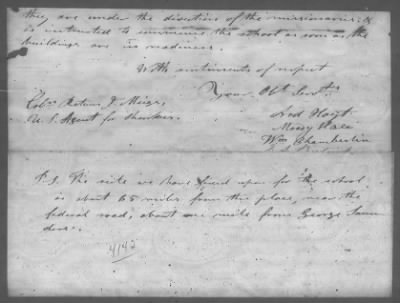 they are under the direction of the missionaries; &
is instructed to commence the school as soon as the
buildings are in readiness.
With sentiments of respect
Your Obt Servts
Colo. Return J. Meigs,
U. S. Agent for Cherokees.
Ard Hoyt
Moody Hall
Wm Chamberlin
P.S. The site we have fixed upon for the school
is about 65 miles from this place, near the
federal road, about one mile from George Saun
ders.
4142